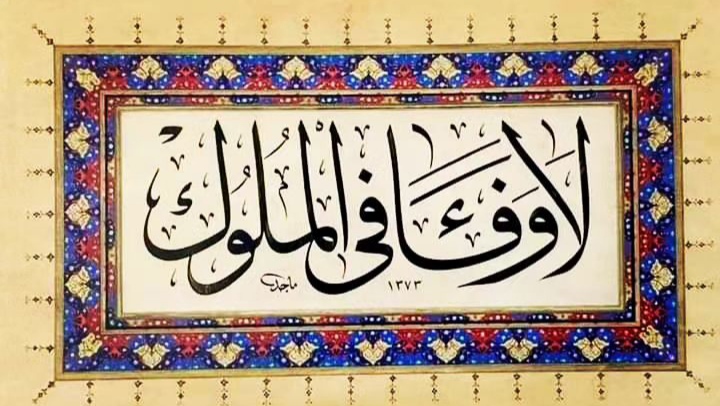 لَا وَفَاءَ فِي الْمُلُوكِ
ماجد ١٣٧٣